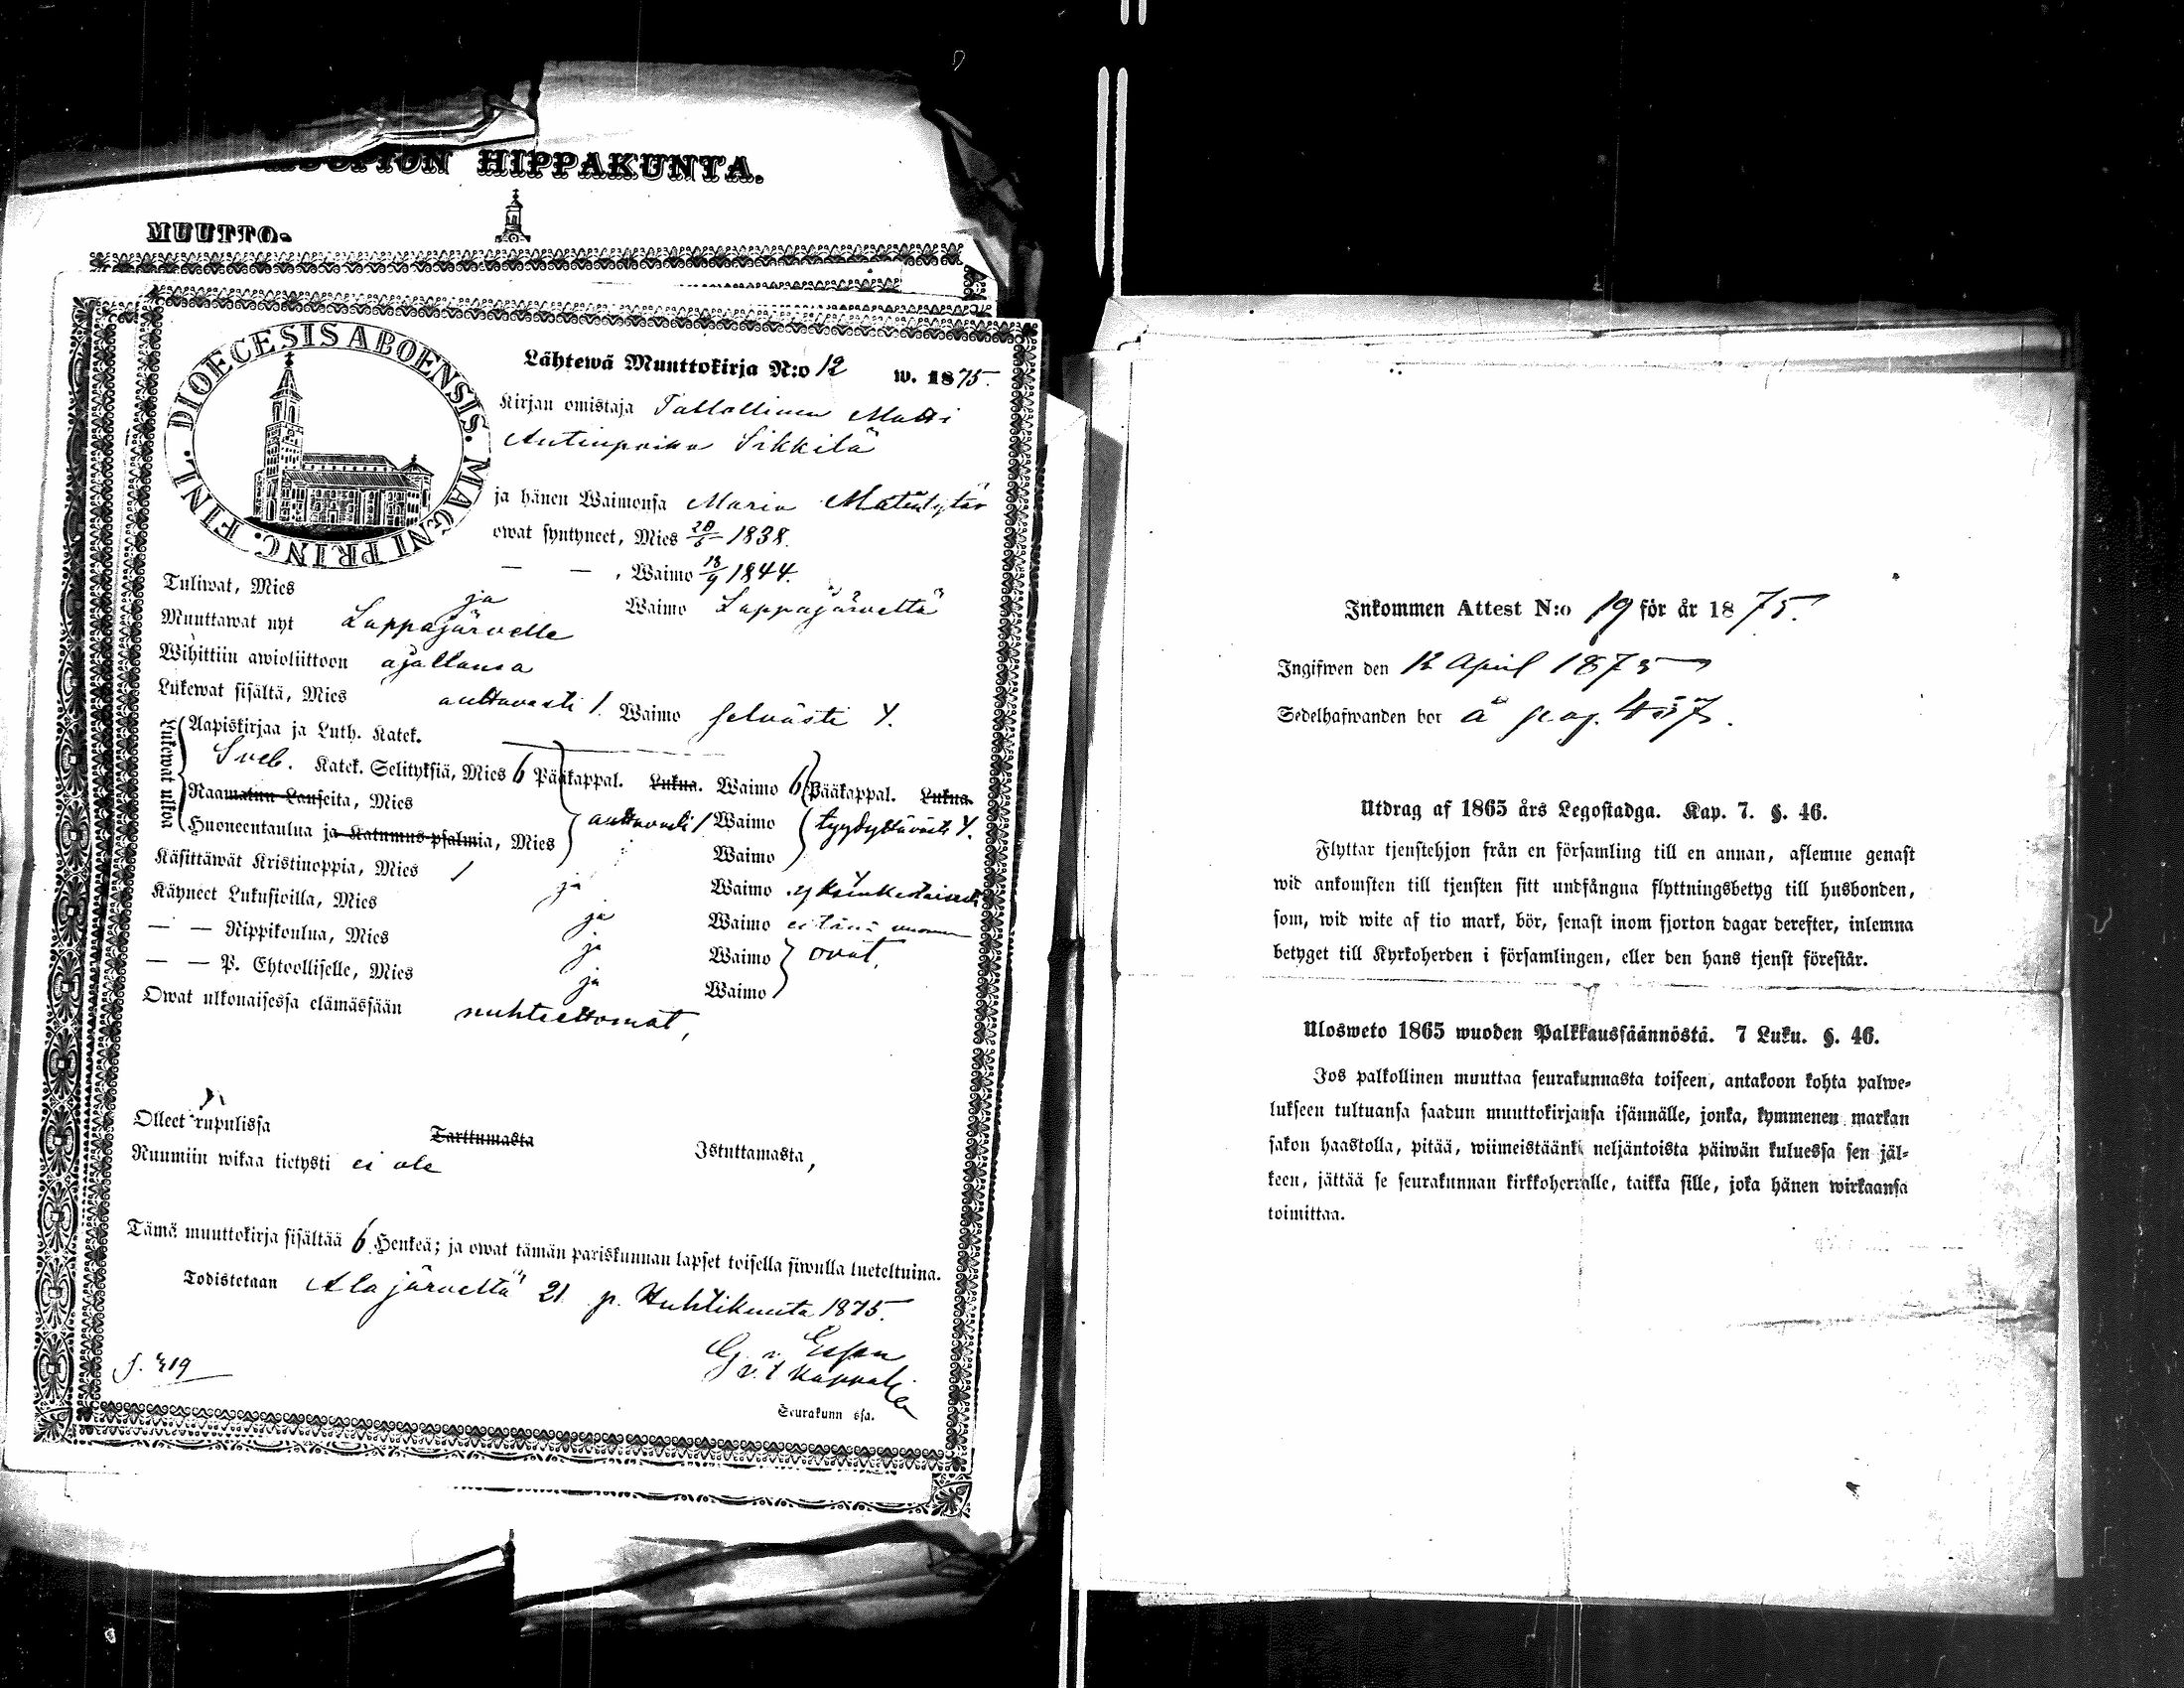 HIPPAKUNTA.
MUUTTO-
DIOECESIS ABOENSIS. MAGNI PRINC. FINL.
Lähtewä Muuttokirja N:o 12 w. 1875.
Kirjan omistaja Matti
Antinpoika Sikkilä
ja hänen Waimonsa Maria
owat syntyneet, Mies 1838.
— — , Waimo 13/9 1844.
Tuliwat, Mies ja Waimo Lappajärveltä
Muuttawat nyt Lappajärvelle
Wihittiin awioliittoon ajallansa
Lukewat sisältä, Mies auttavasti 1. Waimo selvästi Y.
Lukewat ulkoa
Aapiskirjaa ja Luth. Katek.
Sveb. Katek. Selityksiä, Mies 6 Pääkappal. Lukua. Waimo 6 Pääkappal. Lukua.
Raamatun Lauseita, Mies auttavasti 1 Waimo tyydyttävästi Y.
Huoneentaulua ja Katumus-psalmia, Mies Waimo
Käsittäwät Kristinoppia, Mies 1 ja Waimo Y
Käyneet Lukusioilla, Mies ja Waimo ei tänä
— — Rippikoulua, Mies ja Waimo ovat.
— — P. Ehtoolliselle, Mies ja Waimo
Owat ulkonaisessa elämässään nuhteettomat,
Olleet rupulissa Tarttumasta Istuttamasta,
Ruumiin wikaa tietysti ei ole
Tämä muuttokirja sisältää 6 Henkeä; ja owat tämän pariskunnan lapset toisella siwulla lueteltuina.
Todistetaan Alajärveltä 21 p. Huhtikuuta 1875.
G. v. Essen
v. t. Kappal
S. 319
Seurakunn ssa.
Inkommen Attest N:o 19 för år 1875.
Ingifwen den April 1875
Sedelhafwanden bor å pag. 457.
Utdrag af 1865 års Legostadga. Kap. 7. §. 46.
Flyttar tjenstehjon från en församling till en annan, aflemne genast
wid ankomsten till tjensten sitt undfångna flyttningsbetyg till husbonden,
som, wid wite af tio mark, bör, senast inom fjorton dagar derefter, inlemna
betyget till Kyrkoherden i församlingen, eller den hans tjenst förestår.
Ulosweto 1865 wuoden Palkkaussäännöstä. 7 Luku. §. 46.
Jos palkollinen muuttaa seurakunnasta toiseen, antakoon kohta palwe-
lukseen tultuansa saadun muuttokirjansa isännälle, jonka, kymmenen markan
sakon haastolla, pitää, wiimeistäänki neljäntoista päiwän kuluessa sen jäl-
keen, jättää se seurakunnan kirkkoherralle, taikka sille, joka hänen wirkaansa
toimittaa.